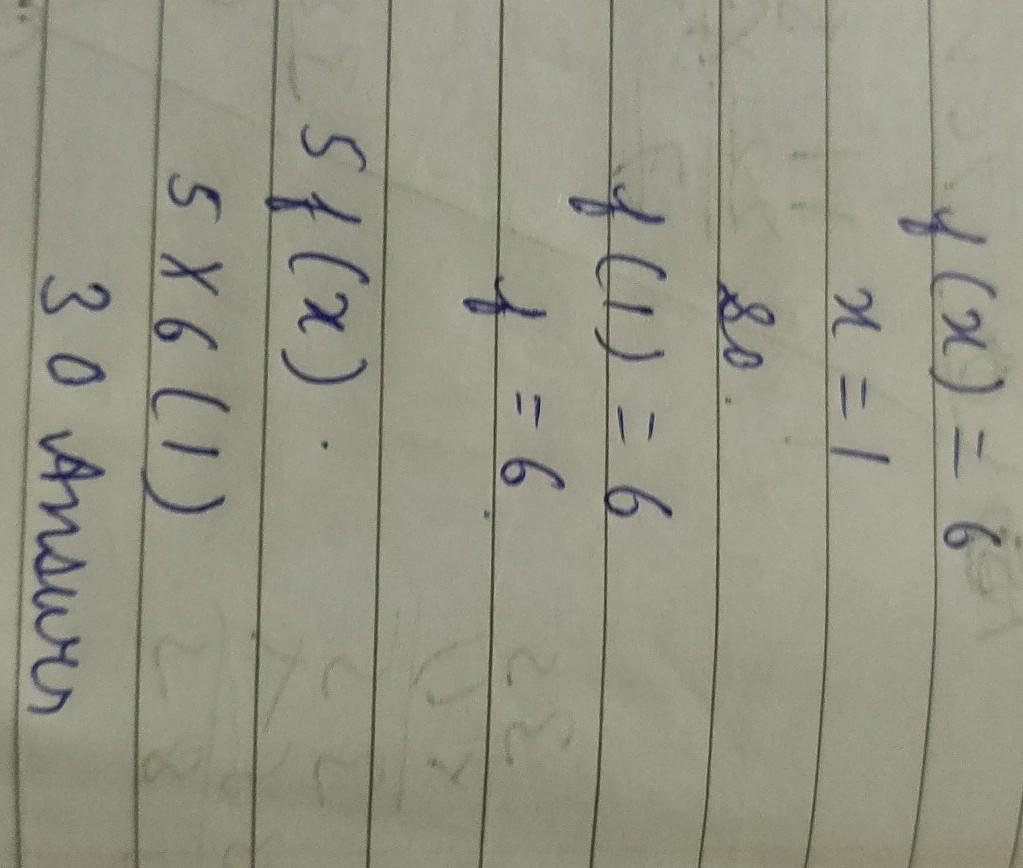 f(x) = 6
x = 1
So.
f(1) = 6
f = 6
5 f(x).
5 x 6 (1)
30 Answer